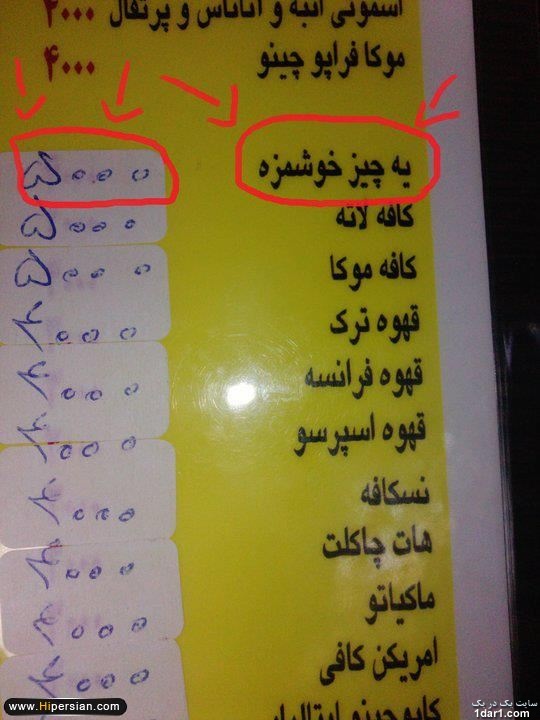 اسموتی انبه و آناناس و پرتقال ۴۰۰۰
موکا فراپو چینو ۴۰۰۰
یه چیز خوشمزه ۵۰۰۰
کافه لاته ۵۰۰۰
کافه موکا ۵۰۰۰
قهوه ترک ۴۰۰۰
قهوه فرانسه ۴۰۰۰
قهوه اسپرسو ۴۰۰۰
نسکافه ۴۰۰۰
هات چاکلت ۴۰۰۰
ماکیاتو ۴۰۰۰
امریکن کافی ۴۰۰۰
کاپوچینو ایتالیایی
www.Hipersian.com
سایت یک در یک
1dar1.com